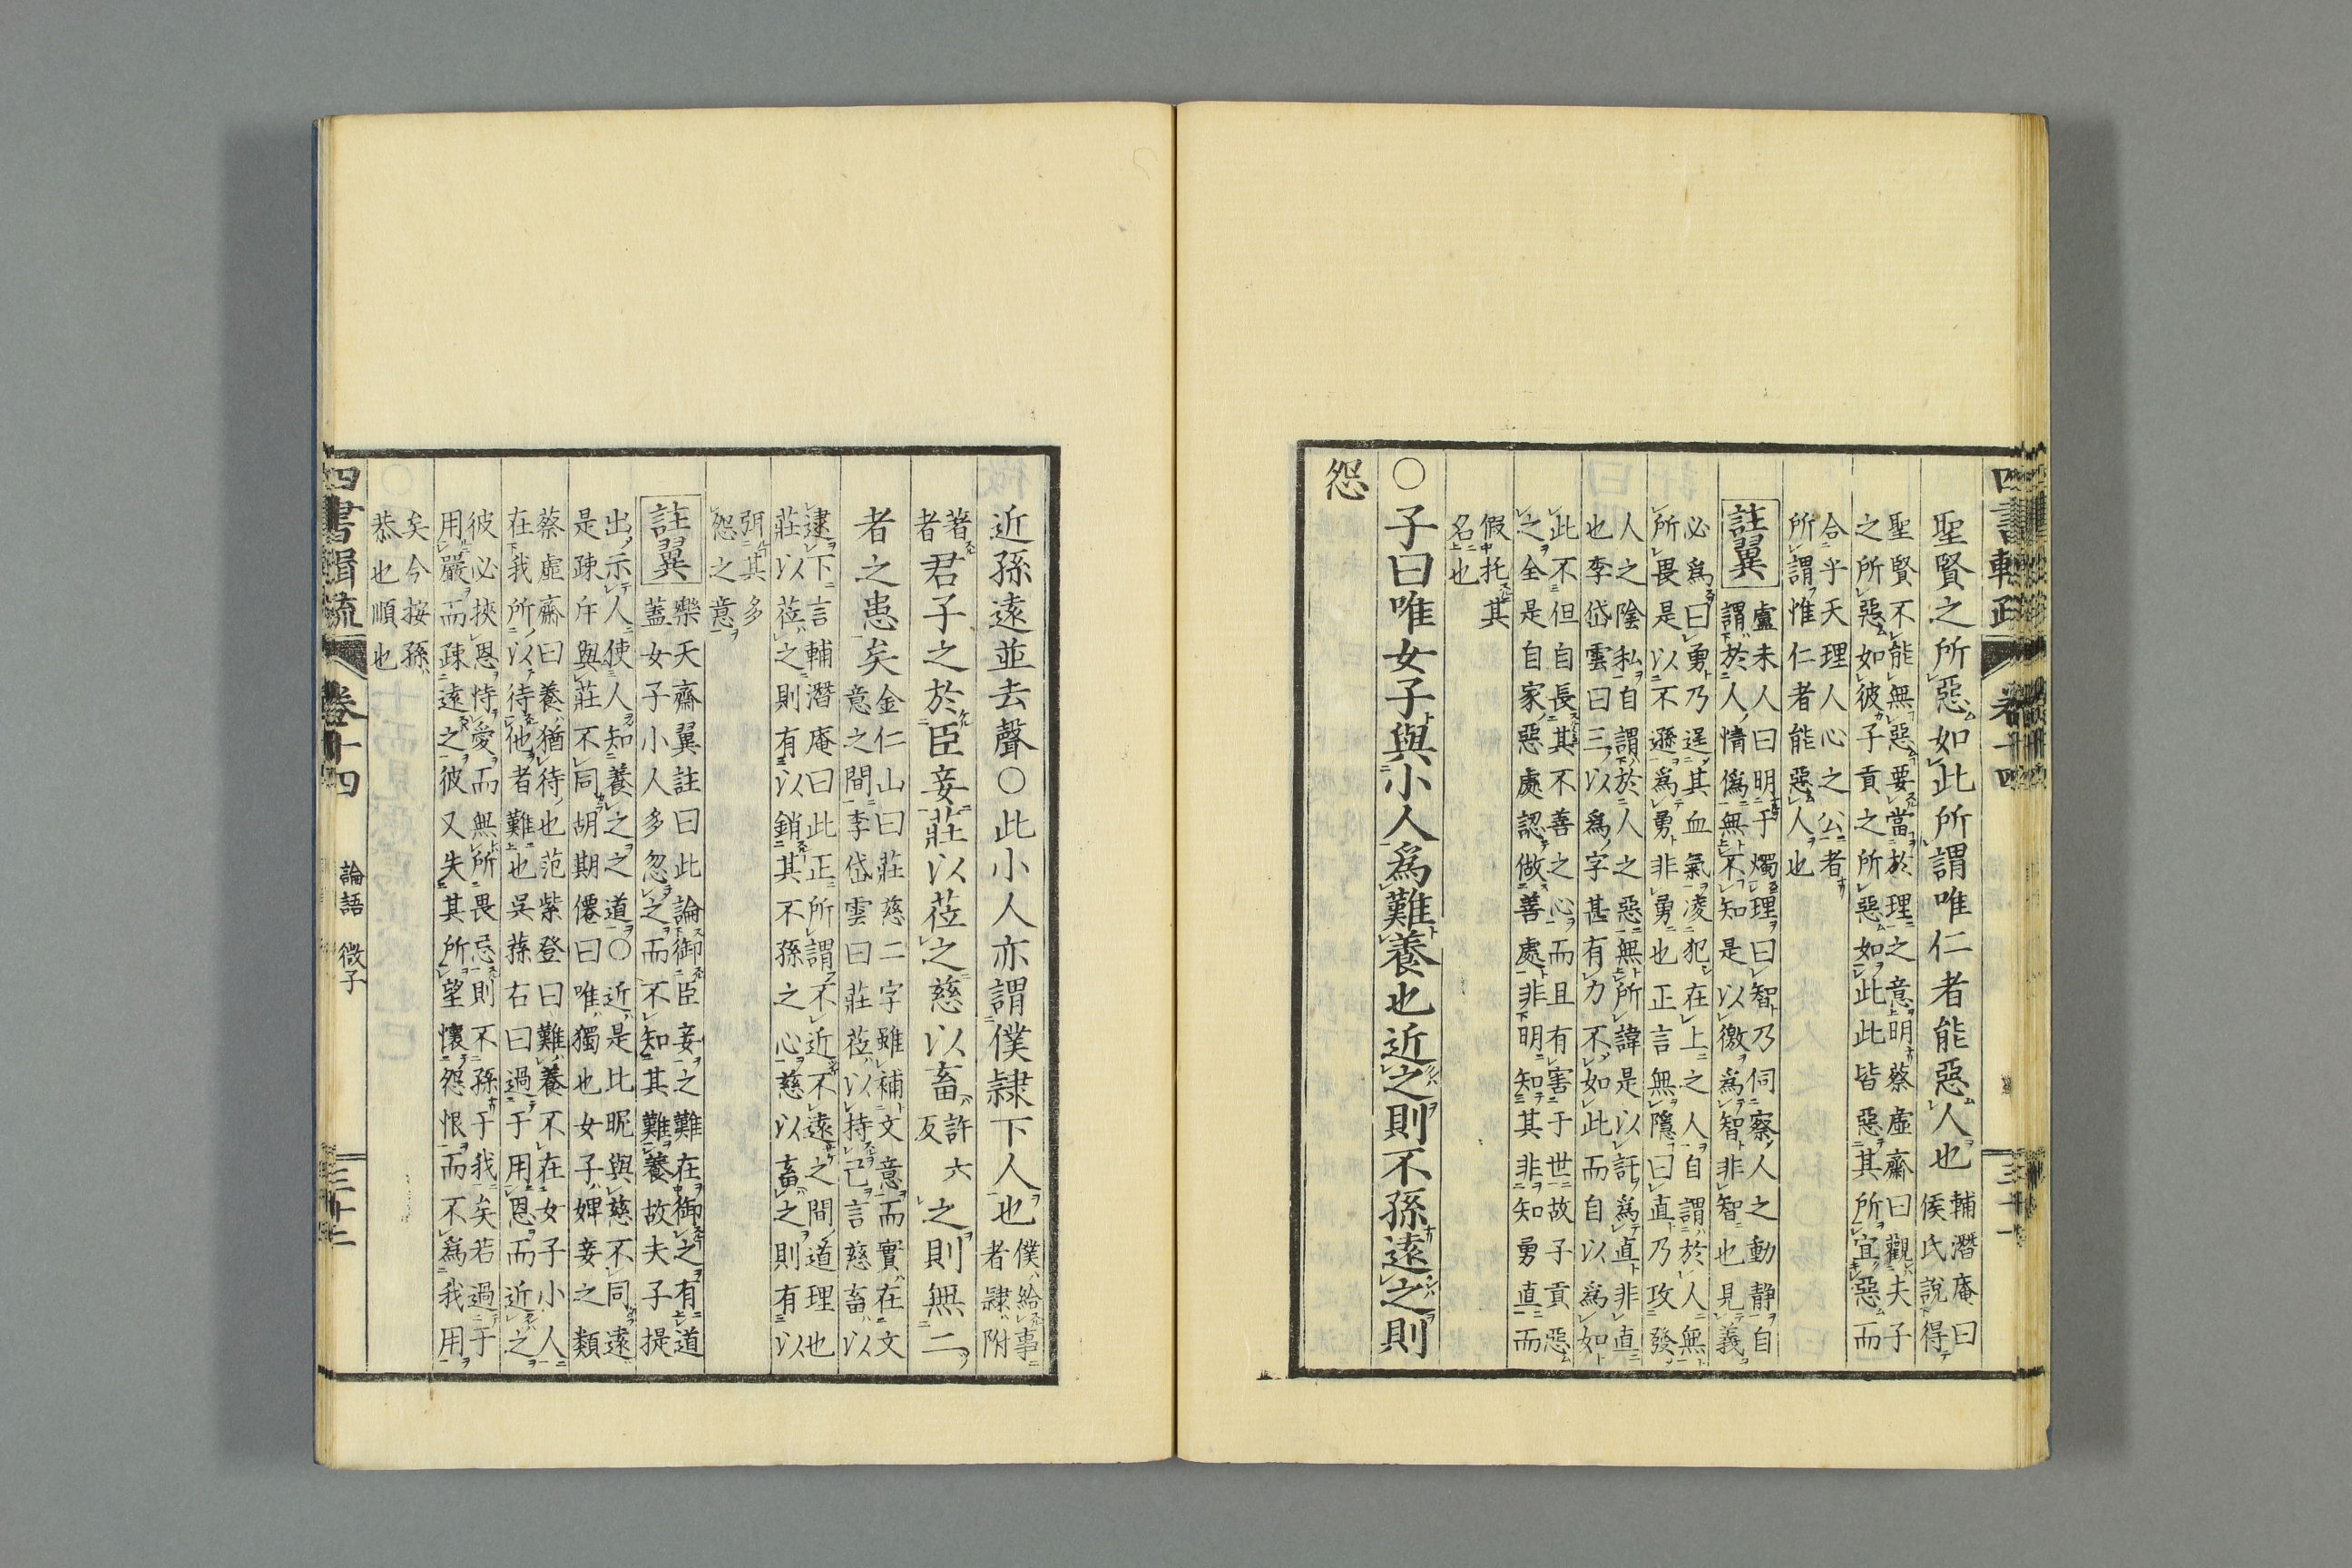 四書輯疏 卷十四 三十一
聖賢之所惡如此所謂唯仁者能惡人也
輔潛庵曰
侯氏說得
聖賢不能無惡要當於理之意明蔡虛齋曰觀夫子
之所惡如彼子貢之所惡如此此皆惡其所宜惡而
合乎天理人心之公者
所謂惟仁者能惡人也
註翼
盧未人曰明于燭理曰智乃伺察人之動静自
謂於人情僞無不知是以徼爲智非智也見義
必爲曰勇乃逞其血氣凌犯在上之人自謂於人無
所畏是以不遜爲勇非勇也正言無隱曰直乃攻發
人之陰私自謂於人之惡無所諱是以訐爲直非直
也李岱雲曰三以爲字甚有力不如此而自以爲如
此不但自長其不善之心而且有害于世故子貢惡
之全是自家惡處認做善處非明知其非知勇直而
假托其
名也
○子曰唯女子與小人爲難養也近之則不孫遠之則
怨
近孫遠並去聲○此小人亦謂僕隷下人也
僕給事
者隷附
著
者
君子之於臣妾莊以莅之慈以畜
許六
反
之則無二
者之患矣
金仁山曰莊慈二字雖補文意而實在文
意之間李岱雲曰莊莅以持己言慈畜以
逮下言輔潛庵曰此正所謂不近不遠之間道理也
莊以莅之則有以銷其不孫之心慈以畜之則有以
弭其多
怨之意
註翼
樂天齋翼註曰此論御臣妾之難在御之有道
蓋女子小人多忽之而不知其難養故夫子提
出示人使人知養之之道○近是比昵與慈不同遠
是疎斥與莊不同胡期僊曰唯獨也女子婢妾之類
蔡虛齋曰養猶待也范紫登曰難養不在女子小人
在我所以待他者難也吳蓀右曰過于用恩而近之
彼必挾恩恃愛而無所畏忌則不孫于我矣若過于
用嚴而疎遠之彼又失其所望懷怨恨而不爲我用
矣今按孫
恭也順也
四書輯疏 卷十四 論語 微子 三十二